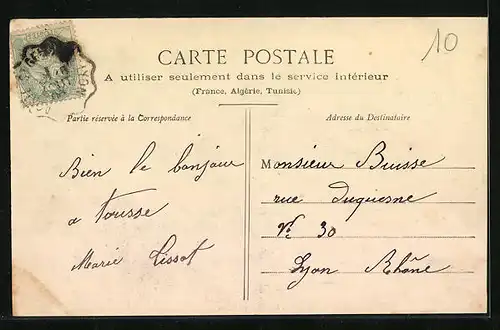 10
CARTE POSTALE
A utiliser seulement dans le service intérieur
(France, Algérie, Tunisie)
Partie réservée à la Correspondance
Adresse du Destinataire
Bien le bonjour
a tousse
Marie Tissot
Monsieur Buisse
rue Duquesne
N° 30
Lyon Rhône